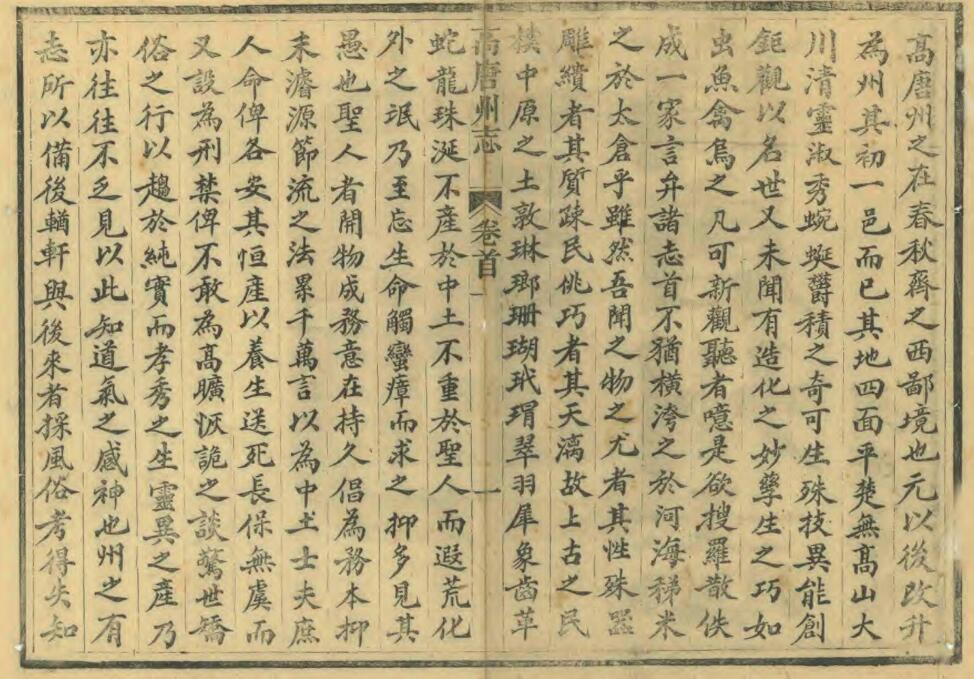 高唐州之在春秋齊之西鄙境也元以後改升
為州其初一邑而已其地四面平楚無高山大
川清靈淑秀蜿蜒欝積之奇可生殊技異能創
鉅觀以名世又未聞有造化之妙孳生之巧如
虫魚禽鳥之凡可新觀聽者噫是欲搜羅散佚
成一家言弁諸志首不猶橫洿之於河海稊米
之於太倉乎雖然吾聞之物之尤者其性殊器
雕繢者其質疎民佻巧者其天漓故上古之民
樸中原之土敦琳瑯珊瑚玳瑁翠羽犀象齒革
高唐州志 卷首 一
蛇龍珠涎不產於中土不重於聖人而遐荒化
外之珉乃至忘生命觸蠻瘴而求之抑多見其
愚也聖人者開物成務意在持久倡為務本抑
末濬源節流之法累千萬言以為中土士夫庶
人命俾各安其恒産以養生送死長保無虞而
又設為刑禁俾不敢為高曠恢詭之談驚世矯
俗之行以趨於純實而孝秀之生靈異之產乃
亦往往不乏見以此知道氣之感神也州之有
志所以備後輶軒與後來者採風俗考得失知